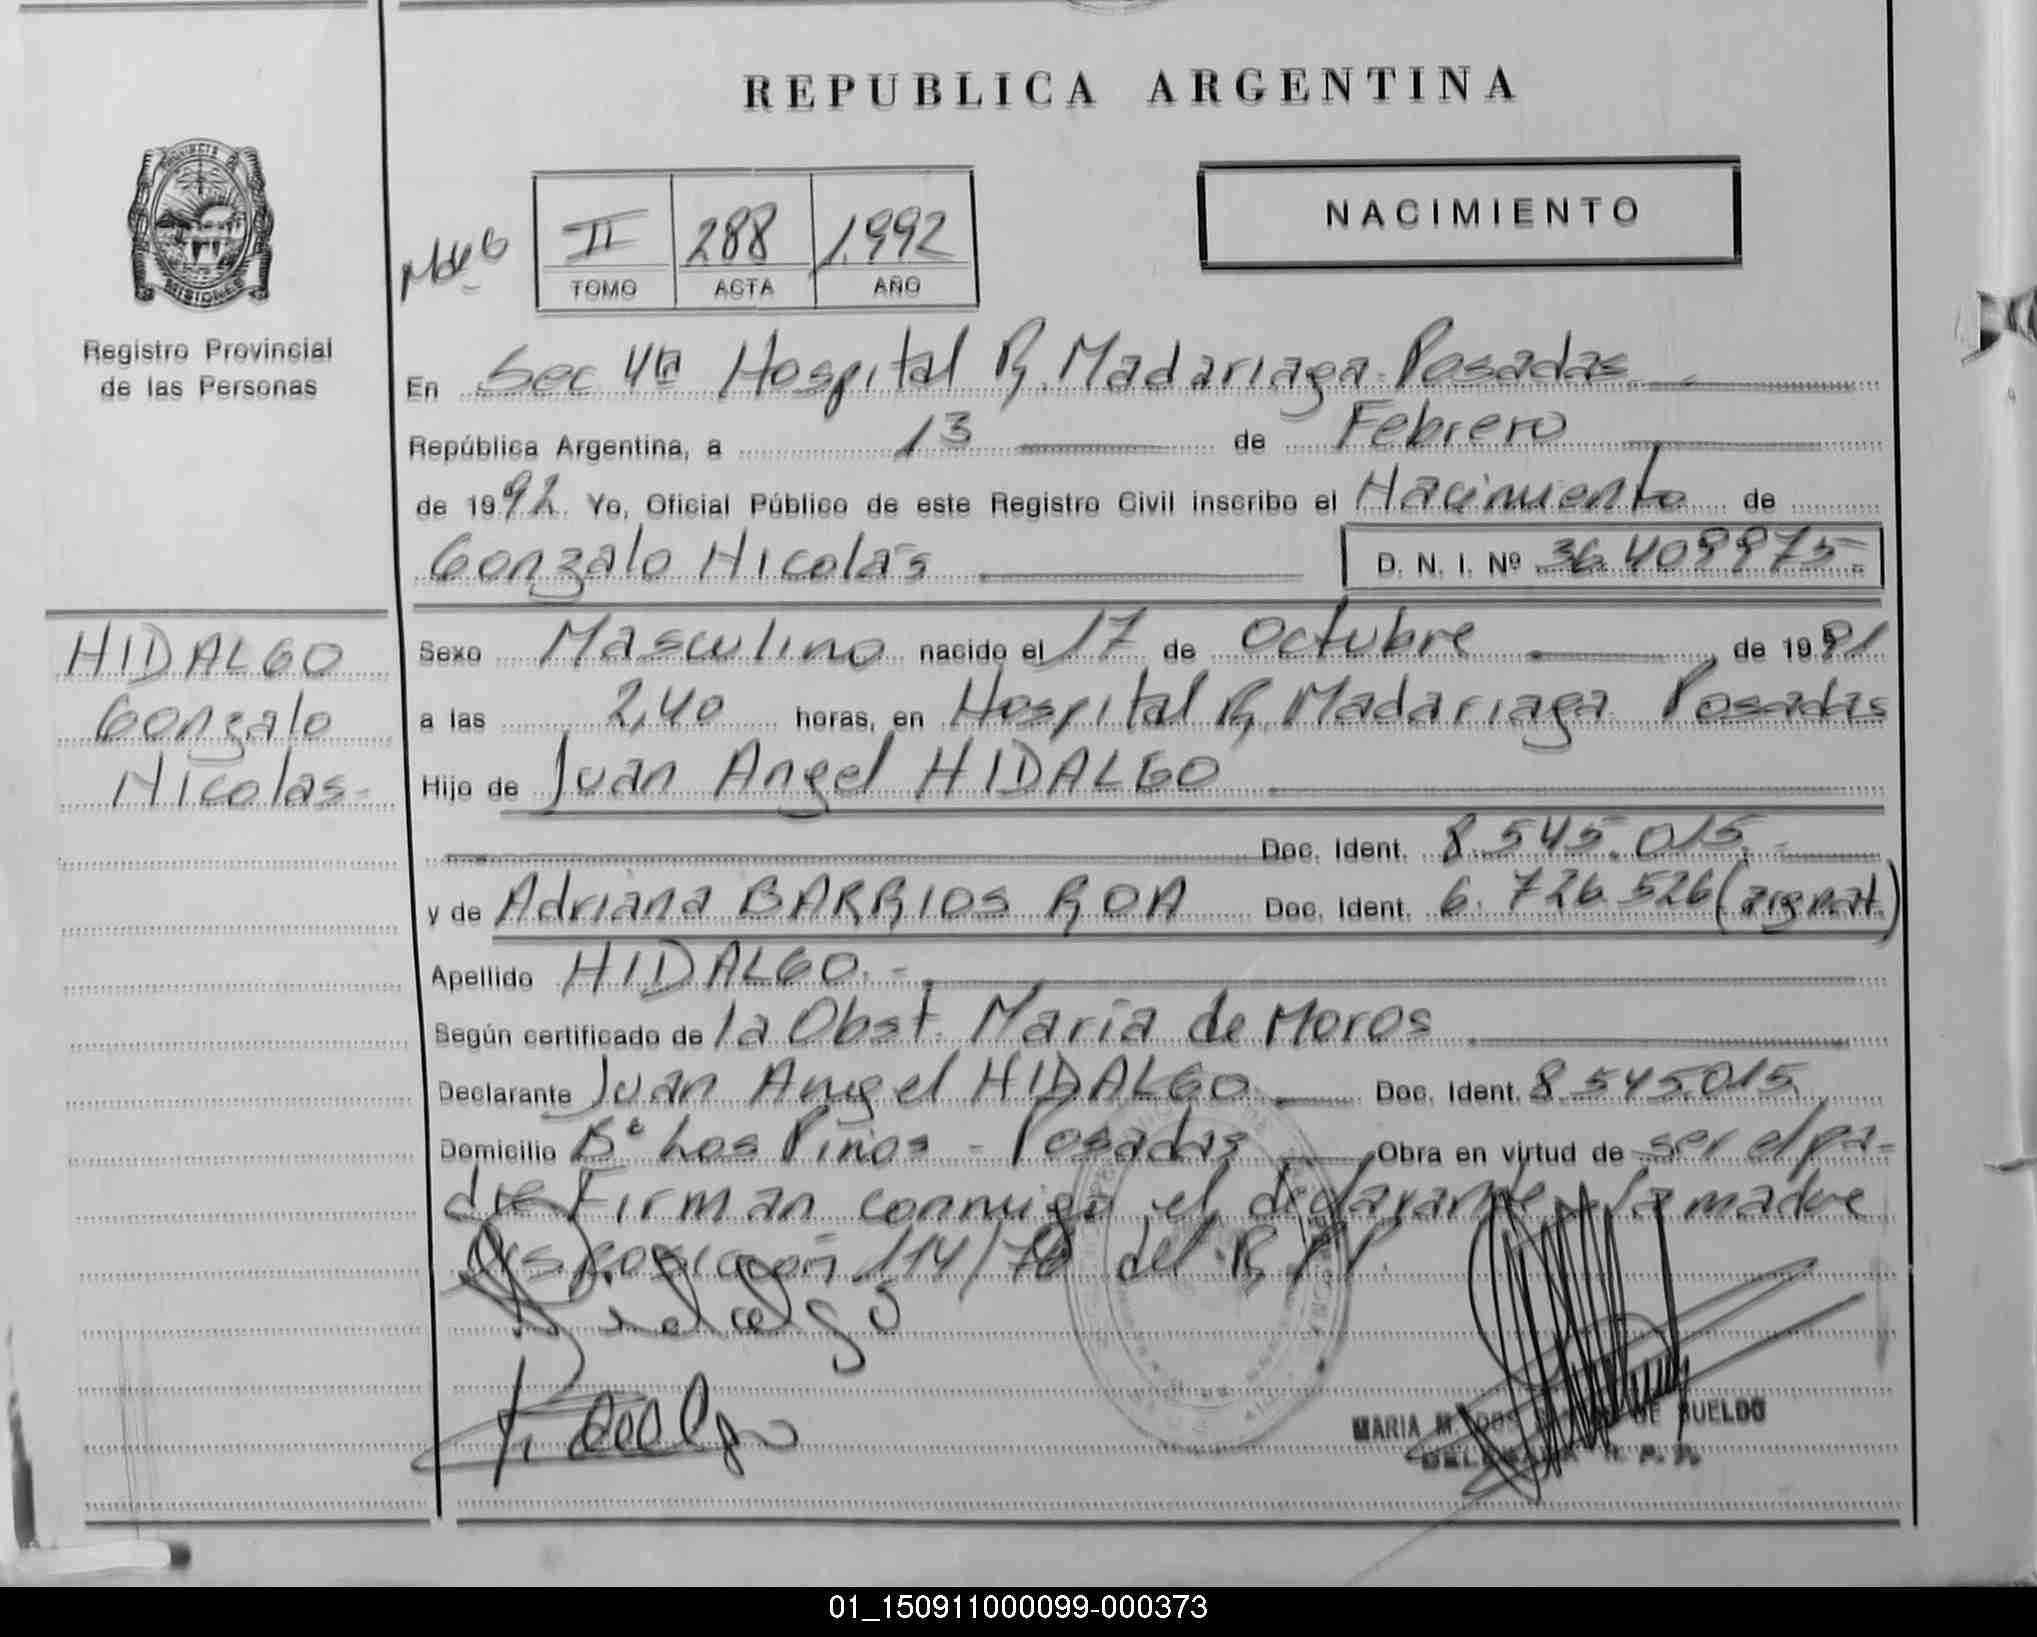 REPUBLICA ARGENTINA
PROVINCIA DE
MISIONES
Registro Provincial
de las Personas
NACIMIENTO
II 288 1.992
TOMO ACTA AÑO
En Sec 4ta Hospital R. Madariaga - Posadas
República Argentina, a 13 de Febrero
de 1992. Yo, Oficial Público de este Registro Civil inscribo el Nacimiento de
Gonzalo Nicolás D. N. I. Nº 36.409975.-
HIDALGO
Gonzalo
Nicolas-
Sexo Masculino nacido el 17 de Octubre de 1991
a las 2,40 horas, en Hospital R. Madariaga Posadas
Hijo de Juan Angel HIDALGO
Doc. Ident. 8.545.015.-
y de Adriana BARRIOS ROA Doc. Ident. 6.726.526
Apellido HIDALGO.-
Según certificado de la Obst. María de Moros
Declarante Juan Angel HIDALGO Doc. Ident. 8.545.015
Domicilio Bº Los Pinos - Posadas Obra en virtud de ser el pa-
dre Firman conmigo el declarante y la madre
Disposición 114/78 del R.P.P.
Hidalgo
MARIA M. DE SUELDO
R. P. P.
01_150911000099-000373